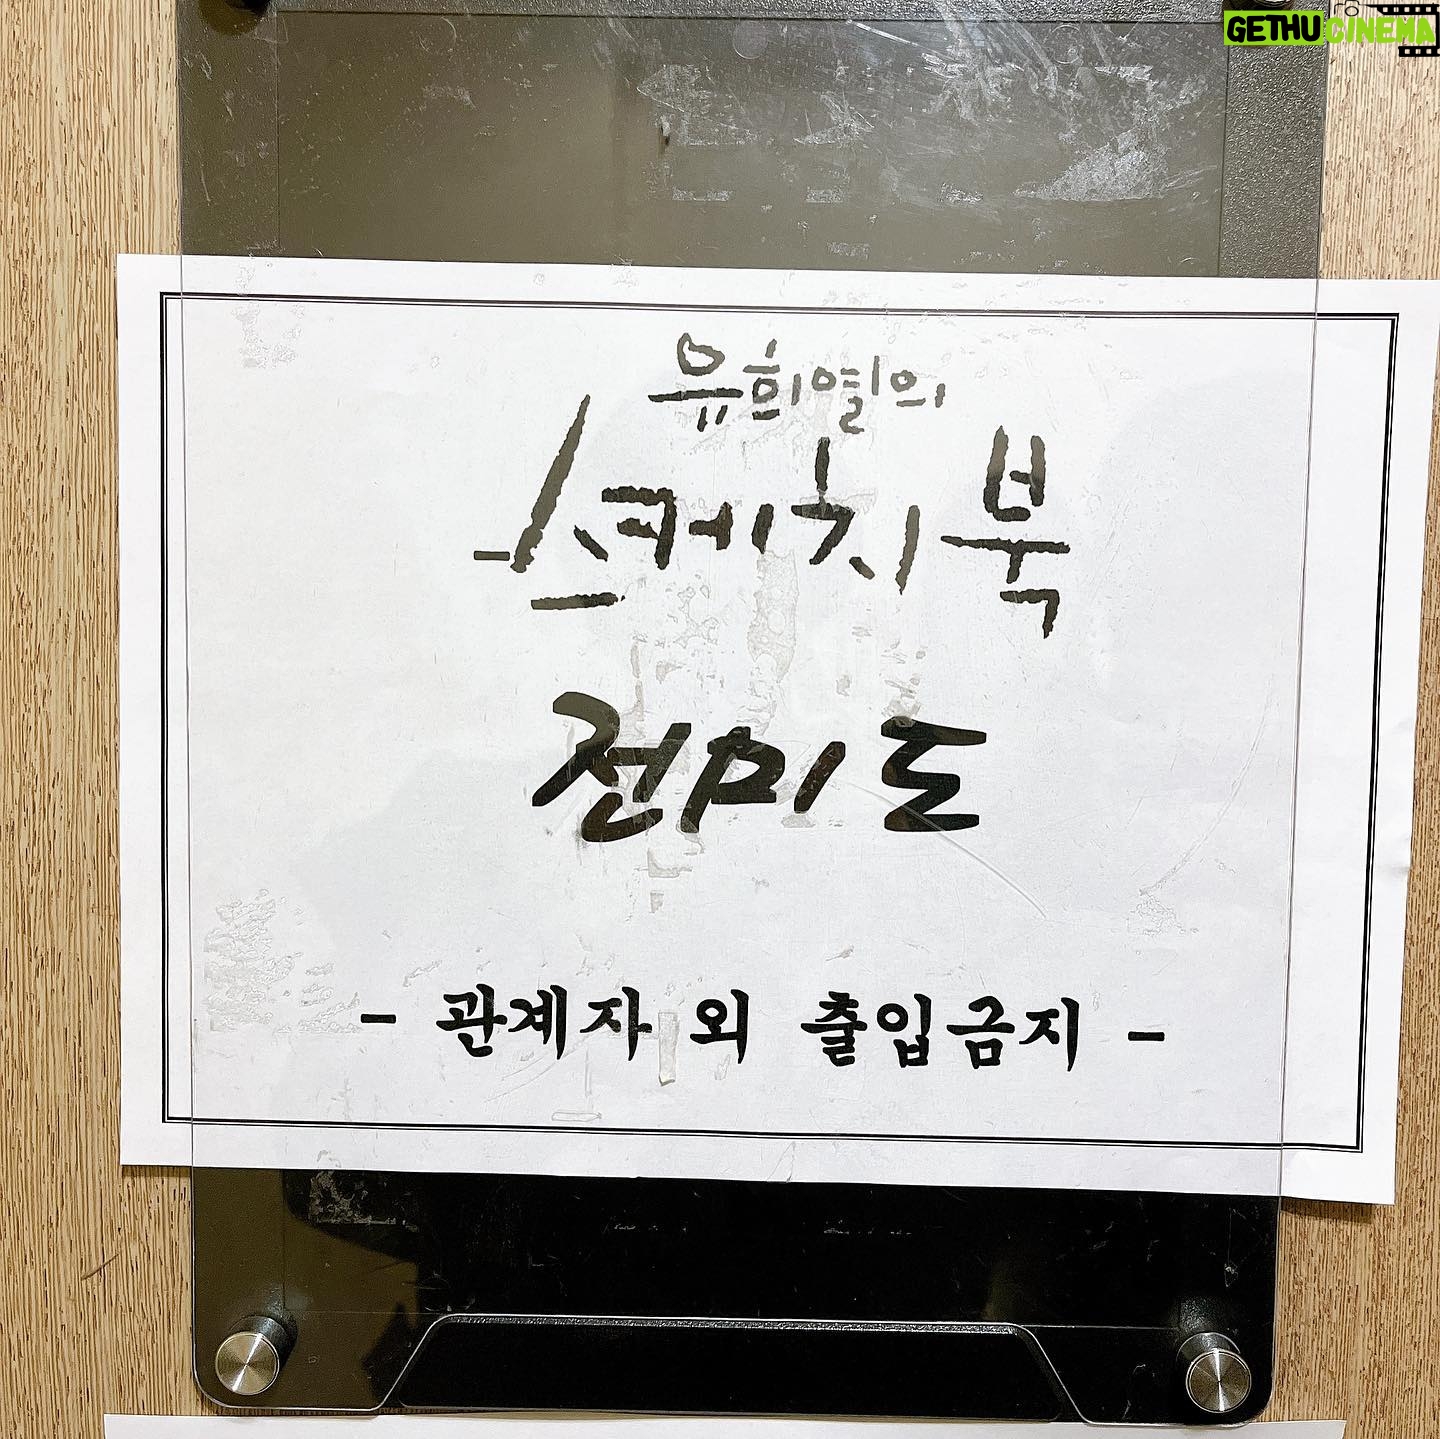 GETHUCINEMA
유희열의
스케치북
전미도
- 관계자 외 출입금지 -